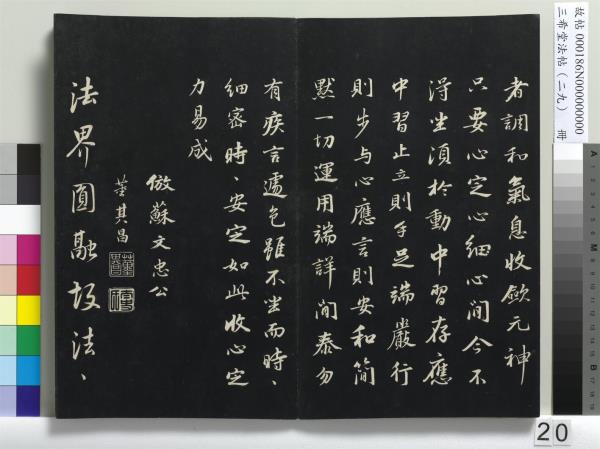 故帖 000186N000000000
三希堂法帖（二九） 冊
者調和氣息收歛元神
只要心定心細心閒今不
得坐須於動中習存應
中習止立則手足端嚴行
則步与心應言則安和簡
默一切運用端詳閒泰勿
有疾言遽色雖不坐而時、
細密時、安定如此收心定
力易成
倣蘇文忠公
董其昌
法界圓融法、
20